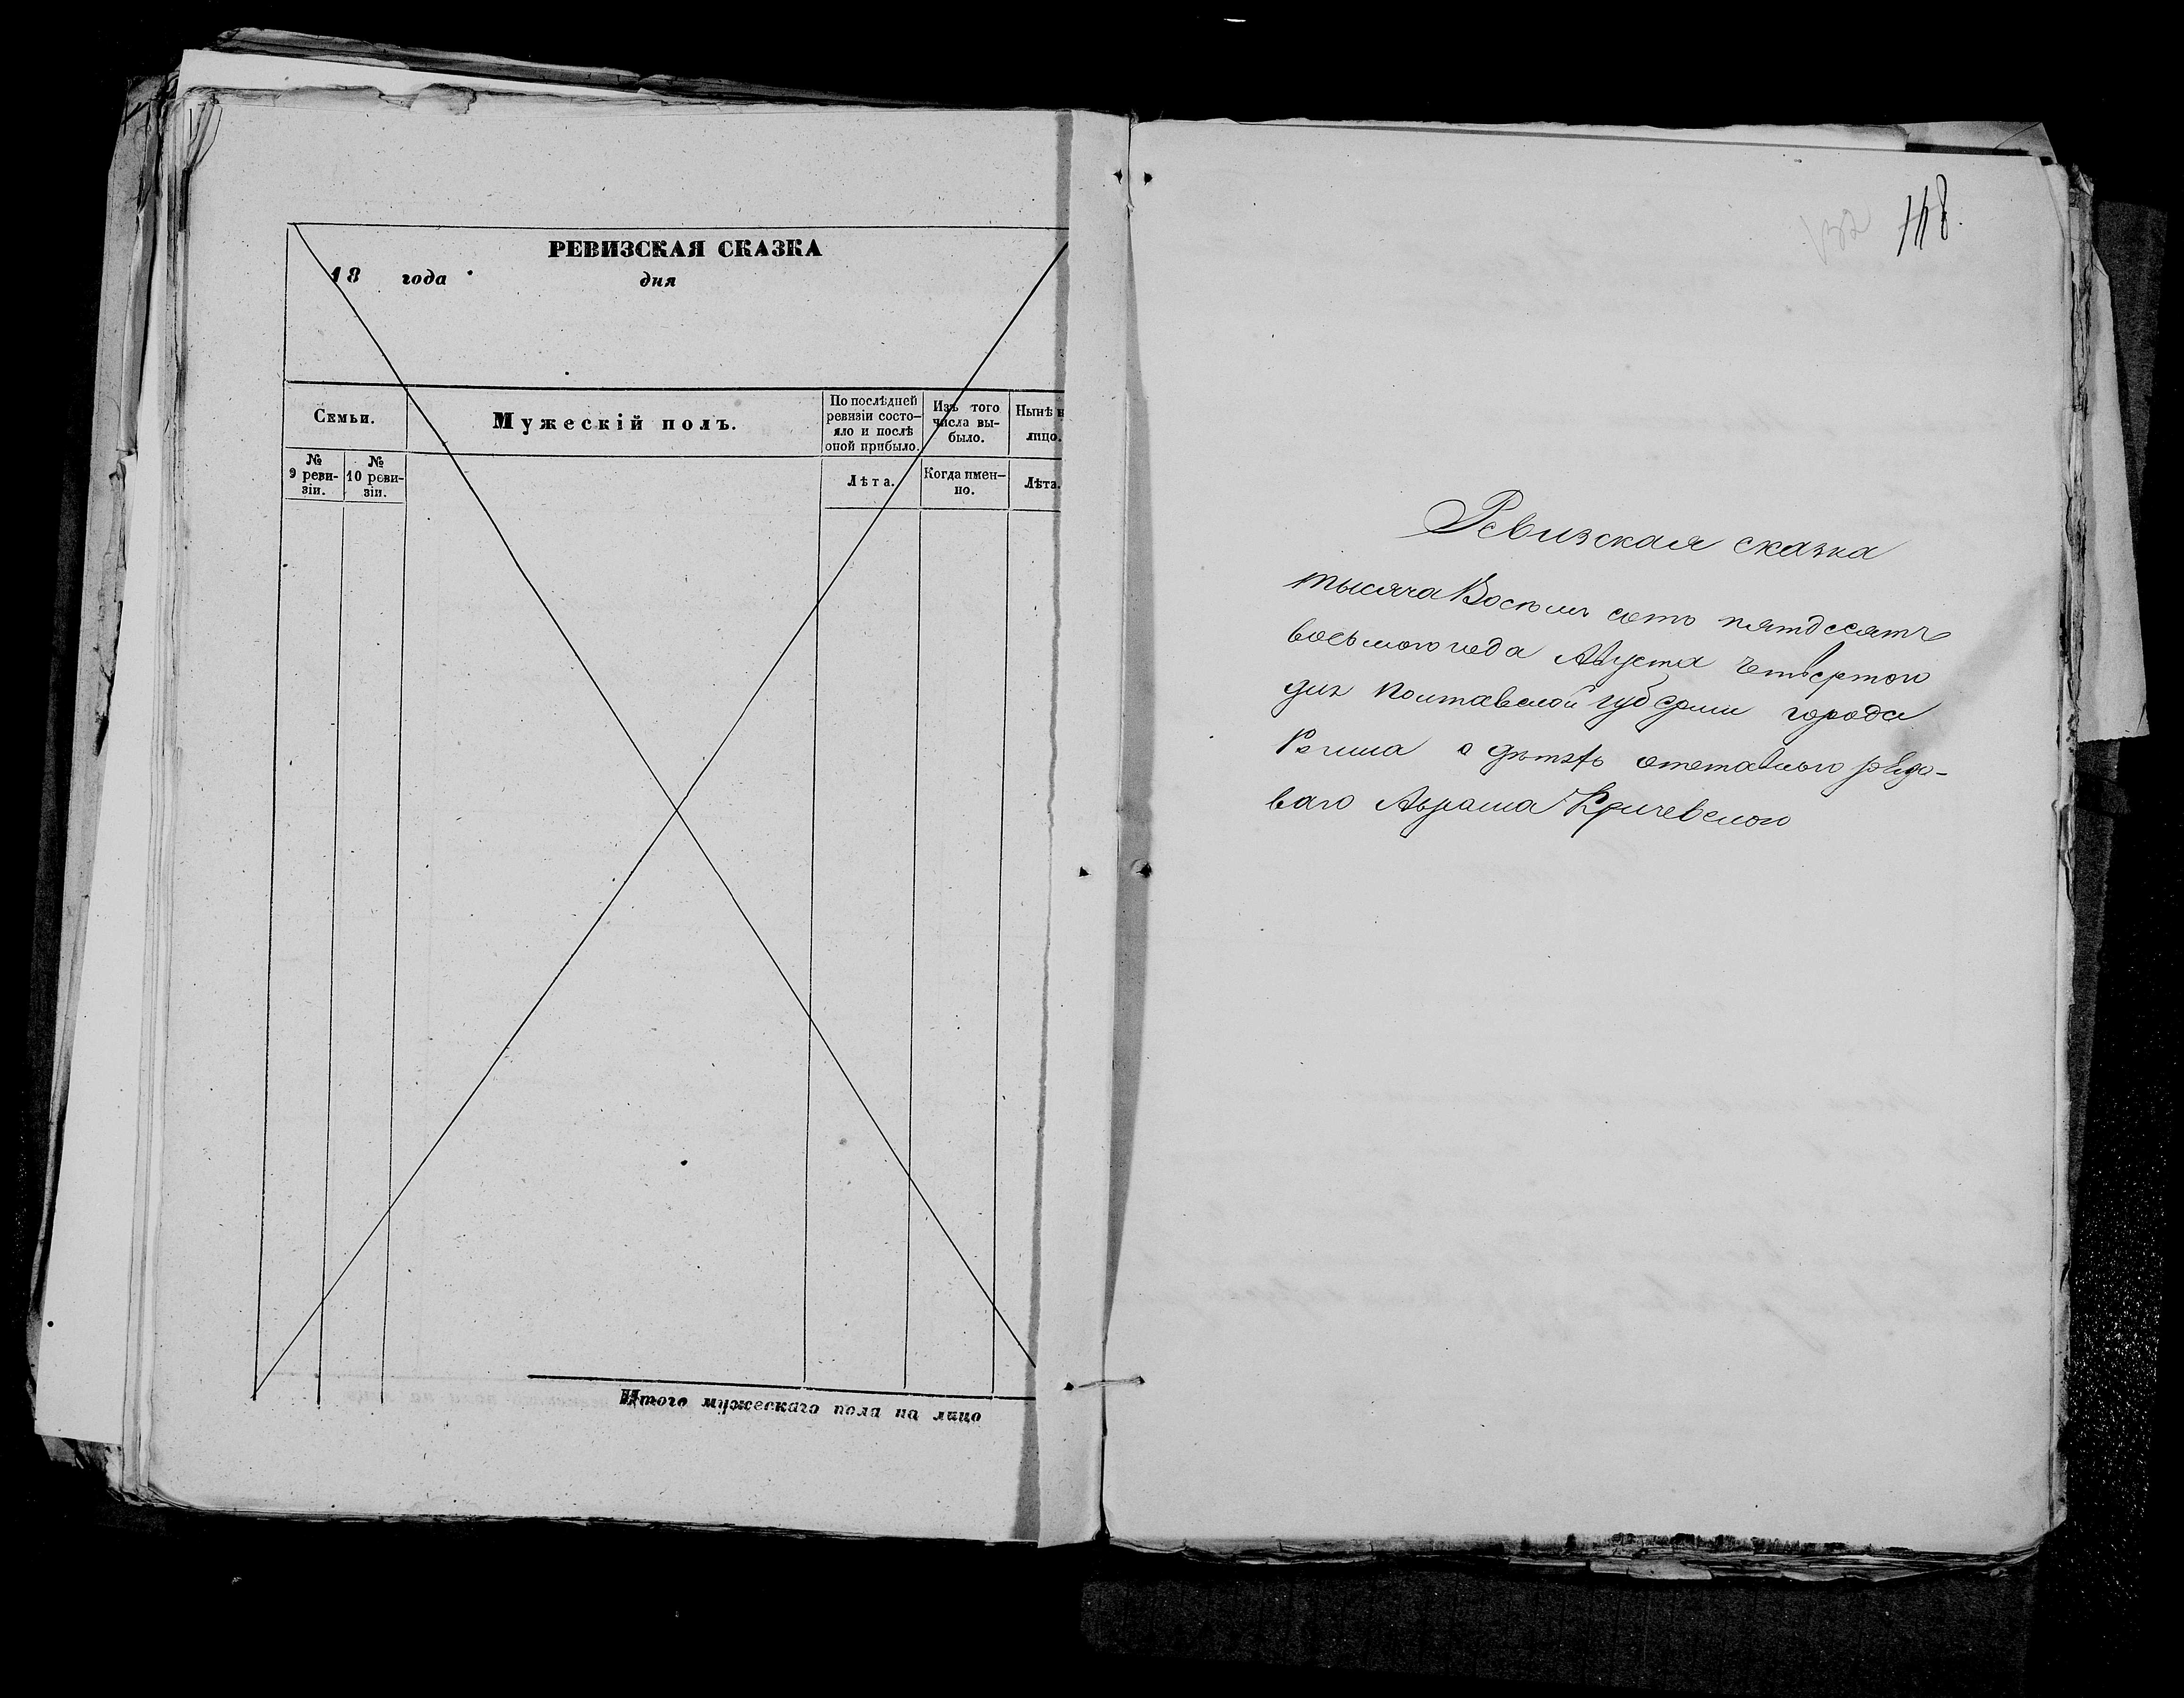 РЕВИЗСКАЯ СКАЗКА
18 года дня
Семьи.
Мужескій полъ.
По послѣдней ревизіи состо-
яло и послѣ
оной прибыло.
Изъ того
числа вы-
было.
Нынѣ н
лицо.
№
9 реви-
зіи.
№
10 реви-
зіи.
Лѣта.
Когда имен-
но.
Лѣта.
Итого мужескаго пола на лицо
132 148.
Ревизская сказка
тысяча Восемь сотъ пятдесятъ
восьмого года Августа четвертого
дня Полтавской губерніи города
о дѣтяхъ отставного рядо-
ваго Абрама Кричевского